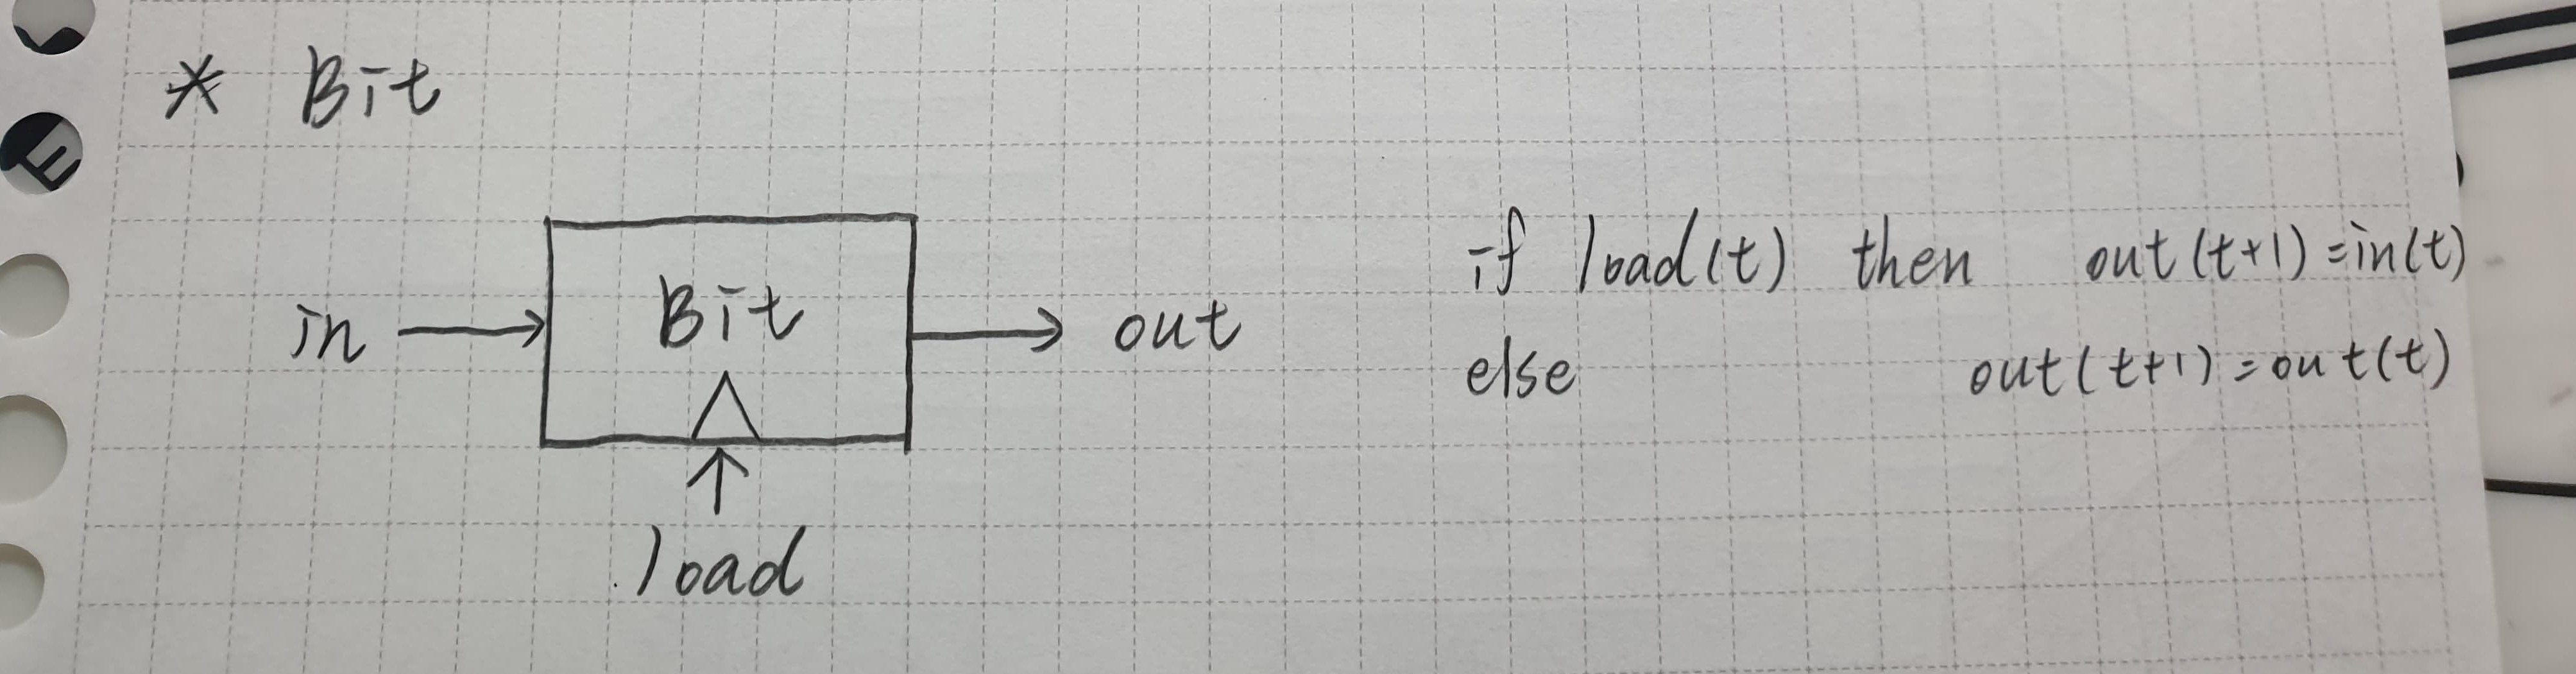 * Bit
in → Bit → out
load
if load(t) then out(t+1)=in(t)
else out(t+1)=out(t)
E